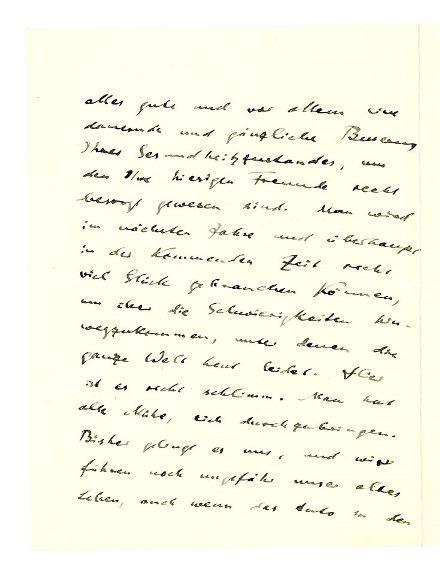 alles gute und vor allem eine
dauernde und gänzliche Besserung
Ihres Gesundheitszustandes, um
den Ihre hiesigen Freunde recht
besorgt gewesen sind. Man wird
im nächsten Jahre und überhaupt
in der kommenden Zeit recht
viel Glück gebrauchen können,
um über die Schwierigkeiten hin-
wegzukommen, unter denen die
ganze Welt heut leidet. Hier
ist es recht schlimm. Man hat
alle Mühe, sich durchzubringen.
Bisher gelingt es uns, und wir
führen noch ungefähr unser altes
Leben, auch wenn das Auto in den